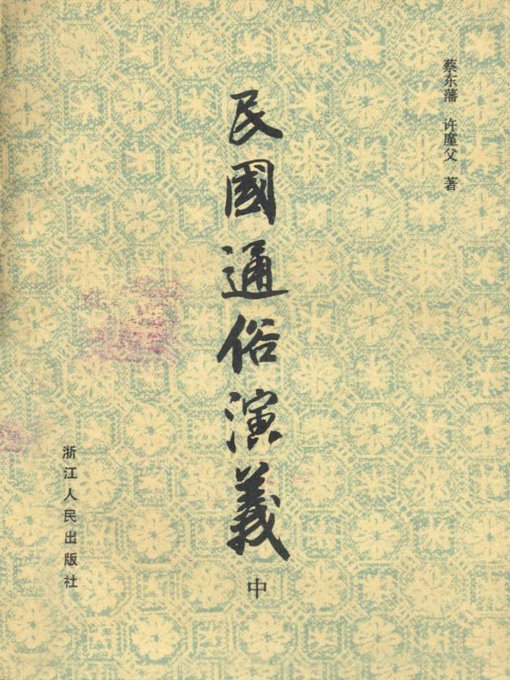 蔡东藩 许廑父 著
民國通俗演義
中
浙江人民出版社